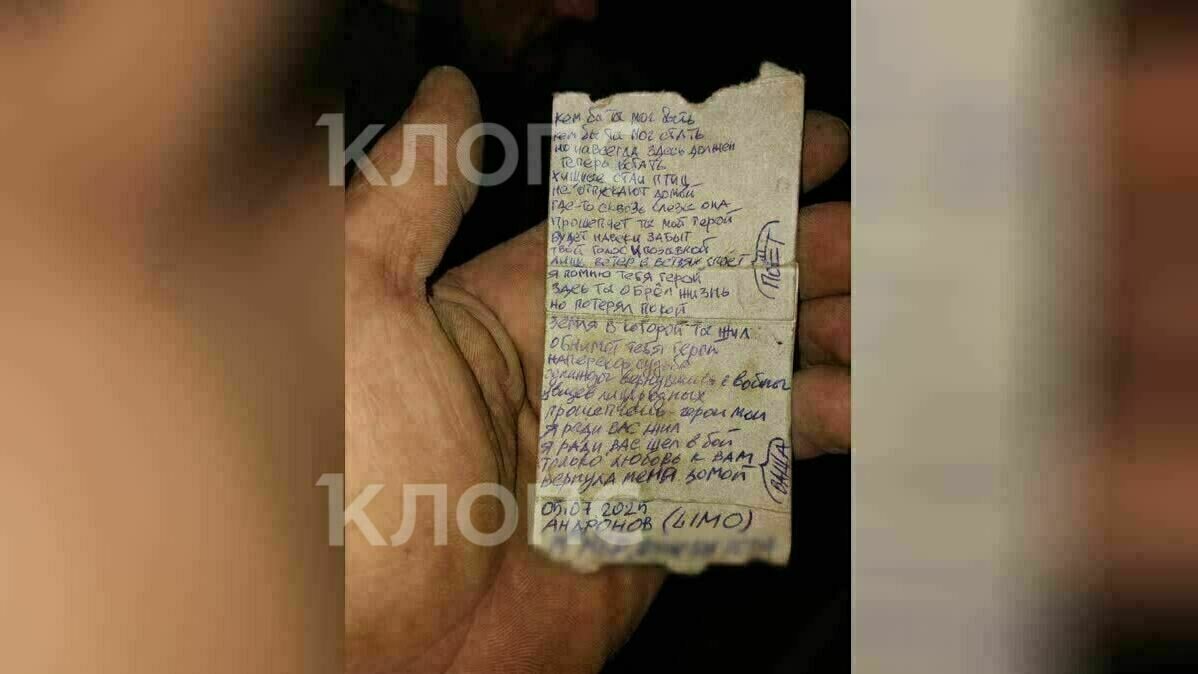 КЛОПС
кем бы ты мог быть
кем бы ты мог стать
но навсегда здесь должен
теперь встать
хищные стаи птиц
не отпускают домой
где-то сквозь слёзы она
прошепчет ты мой герой
будет навеки забыт
твой голос и позывной
лишь ветер в ветвях споёт
ПОЁТ
я помню тебя герой
здесь ты обрёл жизнь
но потерял покой
земля в которой ты жил
обнимет тебя герой
наперекор судьбе
вернувшись с войны
родных
прошепчешь герои мои
я ради вас жил
я ради вас шел в бой
только любовь к вам
вернула меня домой
ВАША
КЛОПС
05.07.2025
АНДРОНОВ (LIMO)